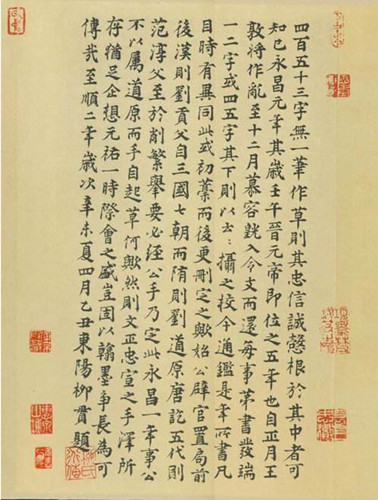 四百五十三字無一筆作草則其忠信誠愨根於其中者可
知已永昌元年其歲壬午晉元帝即位之五年也自正月王
敦將作亂至十二月慕容皝入令支而還每事第書發端
一二字或四五字其下則以云〻攝之校今通鑑是年所書凡
目時有異同此或初藁而後更刪定之歟始公辟官置局前
後漢則劉貢父自三國七朝而隋則劉道原唐訖五代則
范淳父至於削繁舉要必經公手乃定此永昌一年事公
不以屬道原而手自起草何歟然則文正忠宣之手澤所
存猶足企想元祐一時際會之盛豈固以翰墨爭長為可
傳哉至順二年歲次辛未夏四月乙丑東陽柳貫題